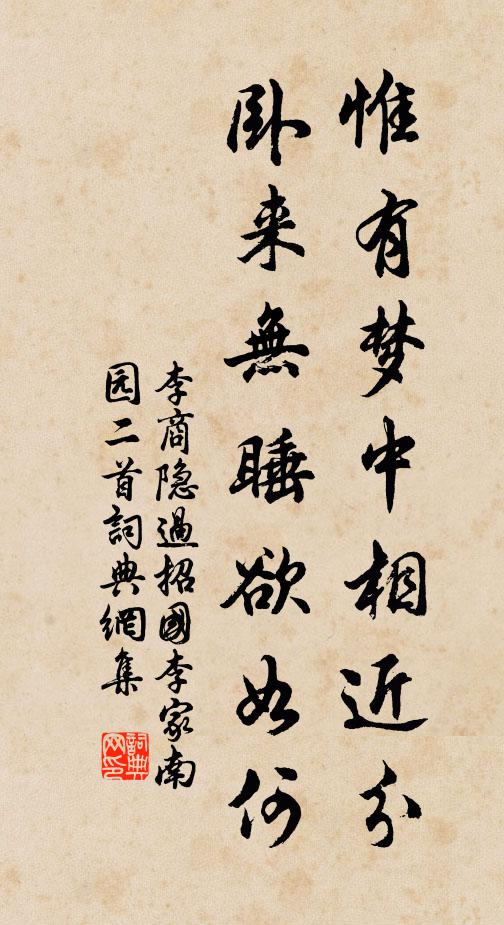 惟有梦中相近分
卧来無睡欲如何
李商隐過招國李家南
园二首詞典網集
詞典网印